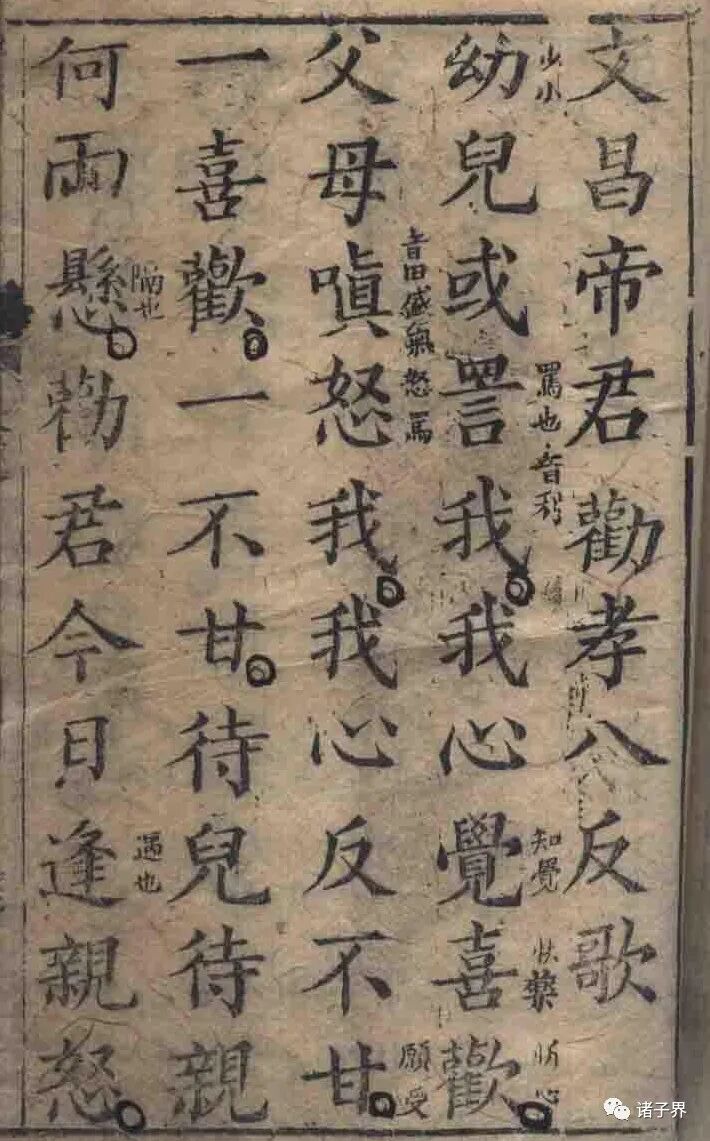 文昌帝君勸孝八反歌
少小
罵也音利
知覺
快樂
忻心
幼兒或詈我我心覺喜歡
音田盛氣怒罵
願受
父母嗔怒我我心反不甘
一喜歡一不甘待兒待親
隔也
遇也
何兩懸勸君今日逢親怒
诸子界